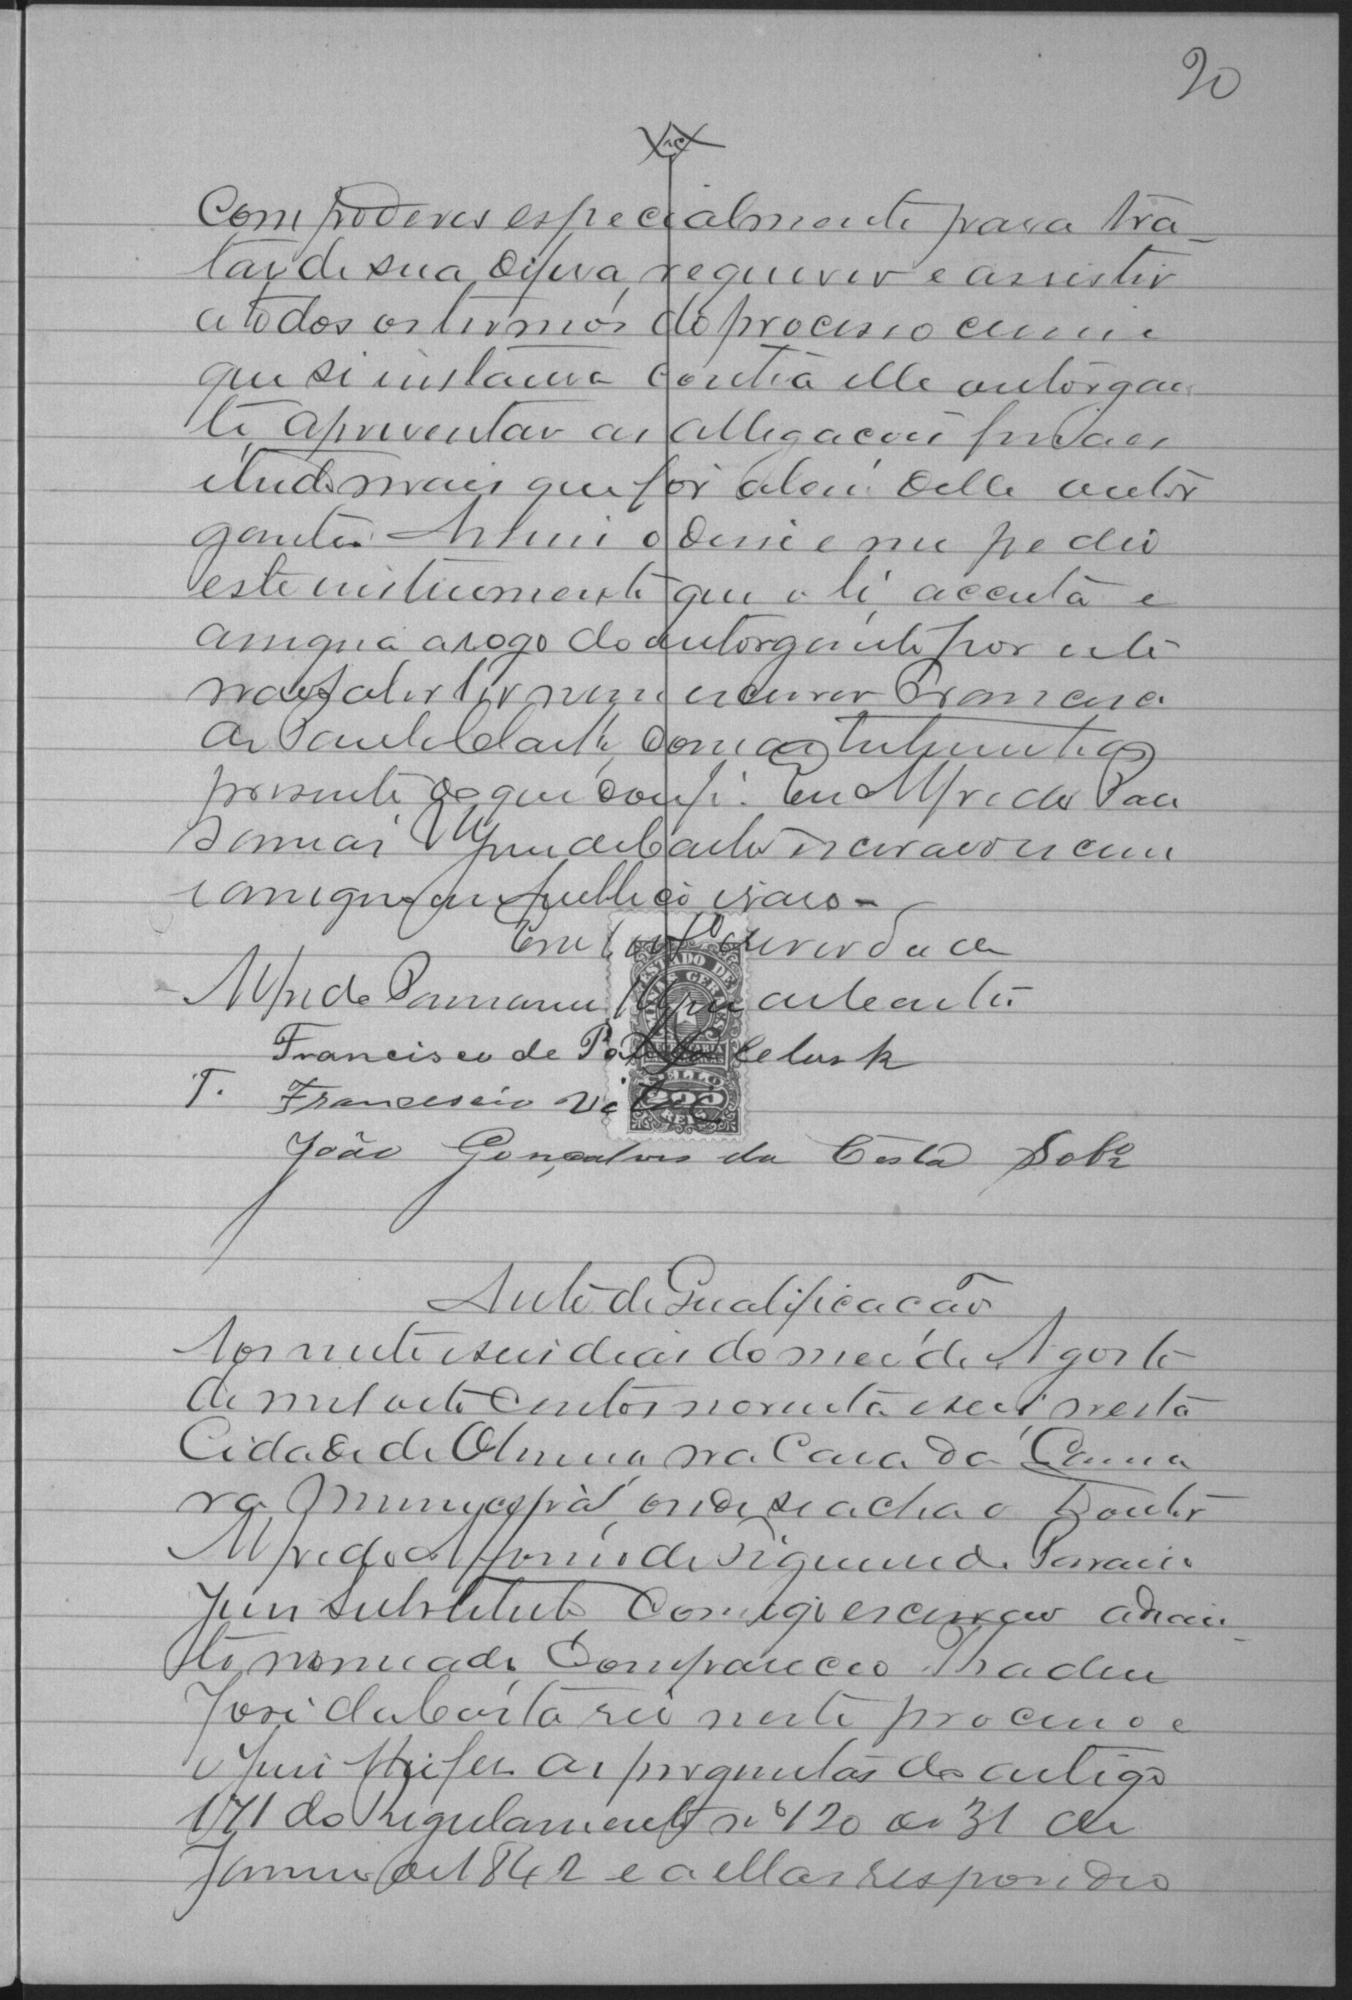 20
Com poderes especialmente para tra-
tar de sua defesa, requerer e assistir
a todos os termos do processo crime
que se instaura contra elle outorgan
te, apresentar as allegações finaes
e tudo mais que for a bem delle outor
gante. Assim o disse e me pediu
este instrumento que o li, acceita e
assigna a rogo do outorgante por este
não saber ler nem escrever Francisco
de Paula Clark, com as testemunhas
presente do que dou fé. Eu Alfredo
escrivão escrevi
e assigno em publico e raso -
Em test.º de verdade
Alfredo
Francisco de Paula Celark
T. Francescio
João Gonçalves da Costa Sobrº
ESTADO DE MINAS GERAES
SELLO
REIS
Auto de Qualificação
Aos vinte e seis dias do mez de Agosto
de mil oito centos noventa e seis nesta
Cidade de na Casa da Cama
ra Municipal, onde se acha o Doutor
Alfredo de
Juiz Substituto Comigo escrivão adian-
te nomeado, Compareceu Thadeu
José da Costa reo neste processo e
o Juiz lhe fez as perguntas do artigo
171 do Regulamento nº 120 de 31 de
Janeiro de 1842 e a ellas respondeo